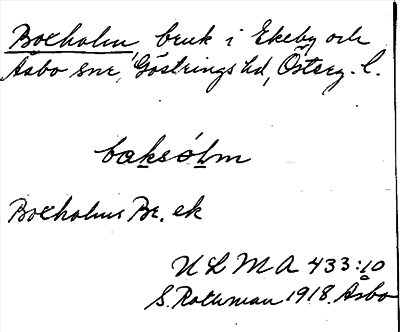 Boxholm, bruk i Ekeby och
Åsbo snr, Göstrings hd, Österg. l.
bo̠ksólm
Boxholms Br. ek
U L M A 433:10
S. Rothman 1918. Åsbo